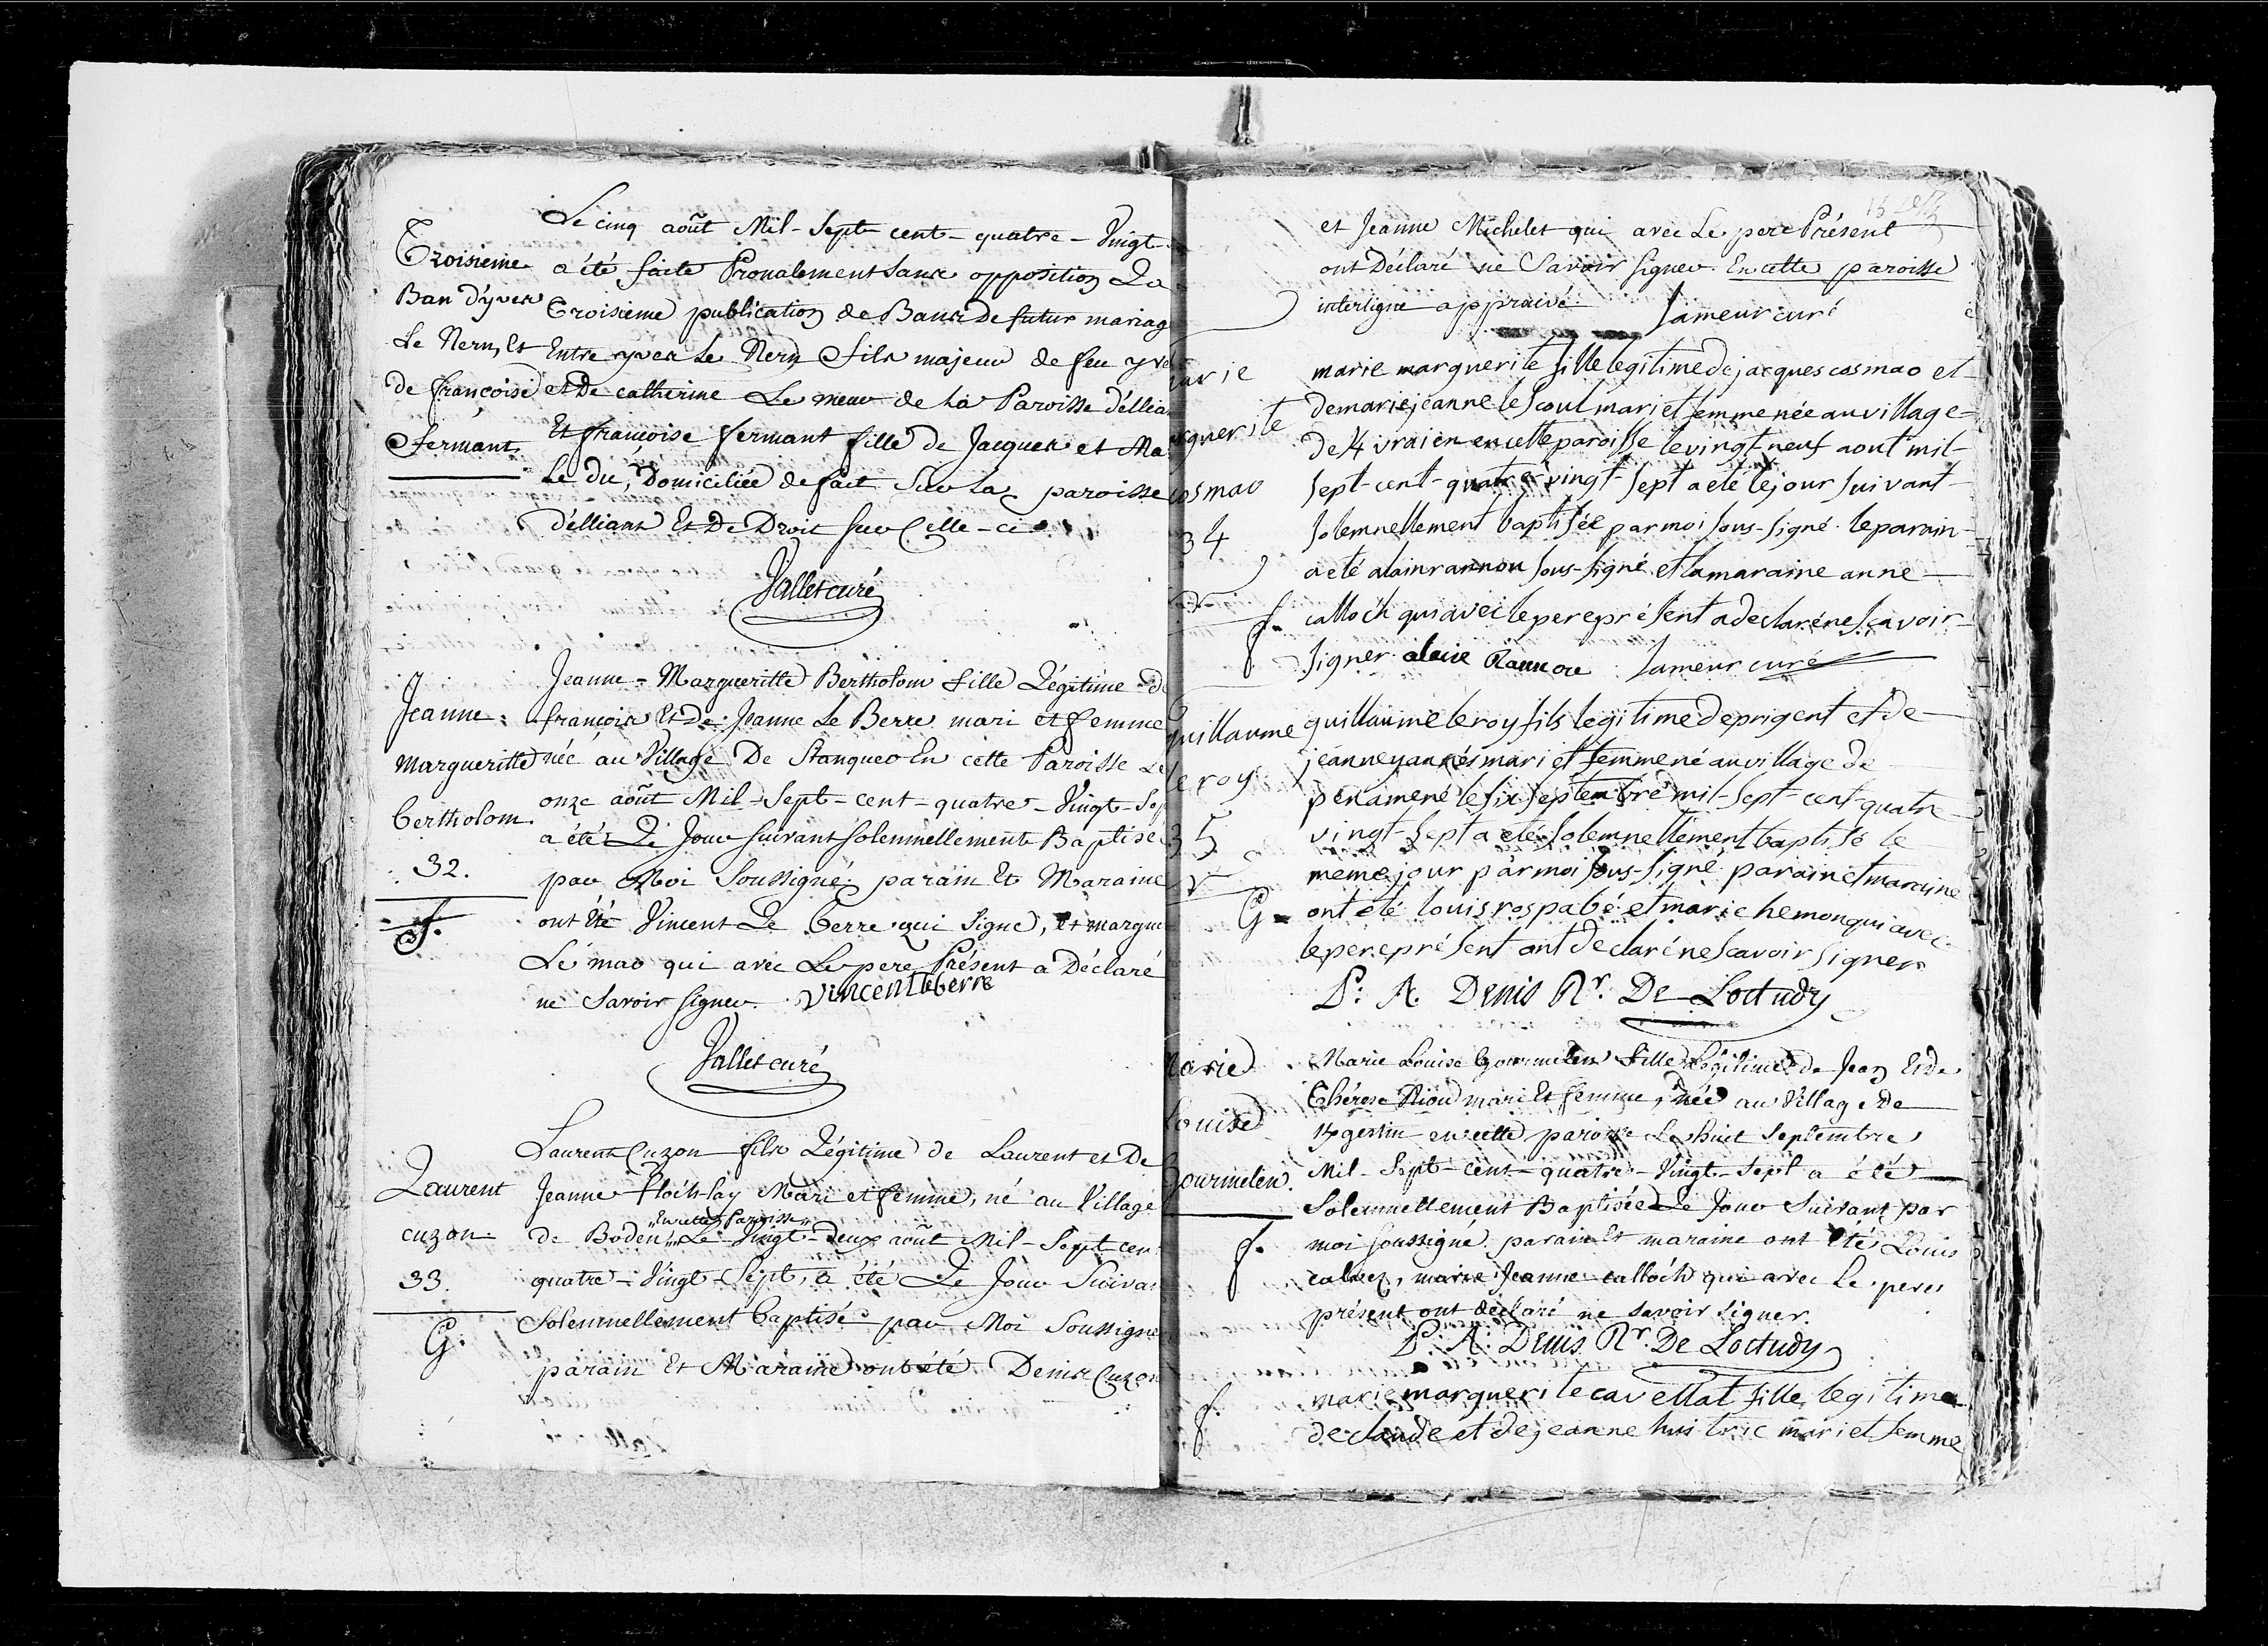 Le cinq août Mil-Sept-cent-quatre-Vingt-
Troisieme
Ban d'yves
Le Nern, et
de françoise
fermant
a été faite Pronalement sans opposition La
Troisieme publication de Bans De futur mariag
Entre yves Le Nern fils majeur de feu yves
et De catherine Le meur de La Paroisse d'ellia
Et françoise fermant fille de Jacques et Ma
Le du, Domiciliée de fait Sur La paroisse
d'elliant Et De Droit sur Celle-ci
Vallet curé
Jeanne
Margueritte
bertholom
32.
f.
Jeanne-Margueritte Bertholom fille Légitime de
françois Et De Jeanne Le Berre mari et femme
née au Village De Stanqueo En cette Paroisse Le
onze août Mil-Sept-cent-quatre-Vingt-Sep
a été Le Jour suivant solemnellement Baptisé
par Moi Soussigné parain Et Maraine
ont Eté Vincent Le berre qui Signe, et margue
Le mao qui avec Le pere Présent a Déclaré
ne Savoir signer. Vincent leberre
Vallet curé
Laurent
cuzon
33.
G.
Laurent Cuzon fils Légitime de Laurent et De
Jeanne Floc'hlay Mari et femme, né au Village
En cette Paroisse
de Boden Le Vingt-Deux août Mil-Sept cen
quatre-Vingt-Sept, a été Le Jour Suivan
Solemnellement baptisé par Moi Soussigne
parain Et Maraine ont été Denis Cuzon
et Jeanne Michelet qui avec Le pere Présent
ont Déclaré ne Savoir signer. En cette paroisse
interligne approuvé Lameur curé
marie
rguerite
cosmao
34
f.
marie marguerite fille legitime de jacques cosmao et
de marie jeanne le scoul mari et femme née au village
de K vraien en cette paroisse le vingt neuf aout mil-
sept-cent-quatre vingt-sept a été le jour suivant
solemnellement baptisée par moi sous-signé. le parain
a eté alain rannou sous-signé et la maraine anne
calloch qui avec le pere présent a declaré ne scavoir
signer alain Rannou Lameur curé
guillaume
le roy
35
G
guillaume le roy fils legitime de prigent et de
jeanne yannés mari et femme né au village de
penamené le six septembre mil-sept-cent-quatre
vingt-sept a eté solemnellement baptisé le
meme jour par moi sous-signé parain et maraine
ont été louis rospabé et marie hemon qui avec
le pere présent ont declaré ne scavoir signer
P. A. Denis Rr. De Loctudy
Marie
Louise
Gourmelen.
f.
Marie Louise Gourmelen fille Légitime de Jean Et de
Thérese Riou mari Et femme, née au Village de
Kgestin en cette paroisse Le huit Septembre
Mil-Sept-cent-quatre-Vingt-Sept a été
Solemnellement Baptisée Le Jour Suivant par
moi soussigné. parain Et maraine ont été Louis
calvez, marie Jeanne calloc'h qui avec Le pere
présent ont déclaré ne savoir signer.
P. A. Denis Rr. De Loctudy
f.
marie marguerite cavellat fille legitime
de claude et de jeanne huitric mari et femme